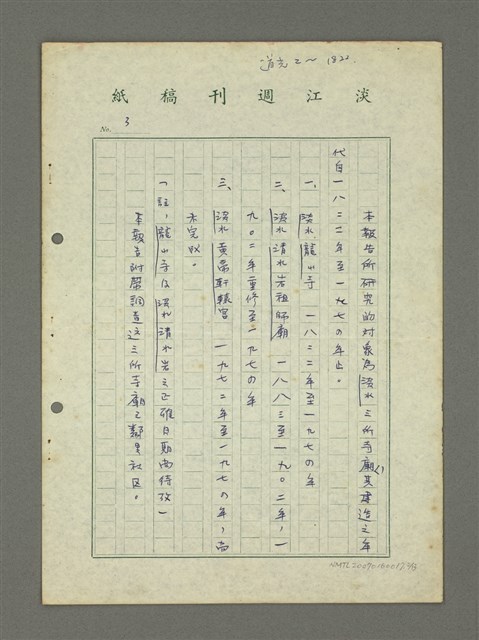 道光2～1822.
淡江週刊稿紙
No. 3
本報告所研究的對象為淡水三所寺廟,其建造之年
代自一八二二年至一九七四年止。
一、淡水龍山寺 一八二二年至一九七四年
二、淡水清水岩祖師廟 一八八三至一九○二年,一
九○二年重修至一九七四年
三、淡水黃帝軒轅宮 一九七二年至一九七四年,尚
未完收。
(註:龍山寺及淡水清水岩之正確日期尚待攷)
本報告附帶調查這三所寺廟之鄰里社區。
NMTL20070160012